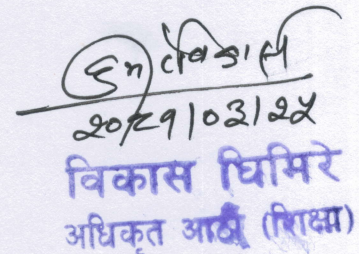 २०८१।०३।२५
विकास घिमिरे
अधिकृत आठौं (शिक्षा)